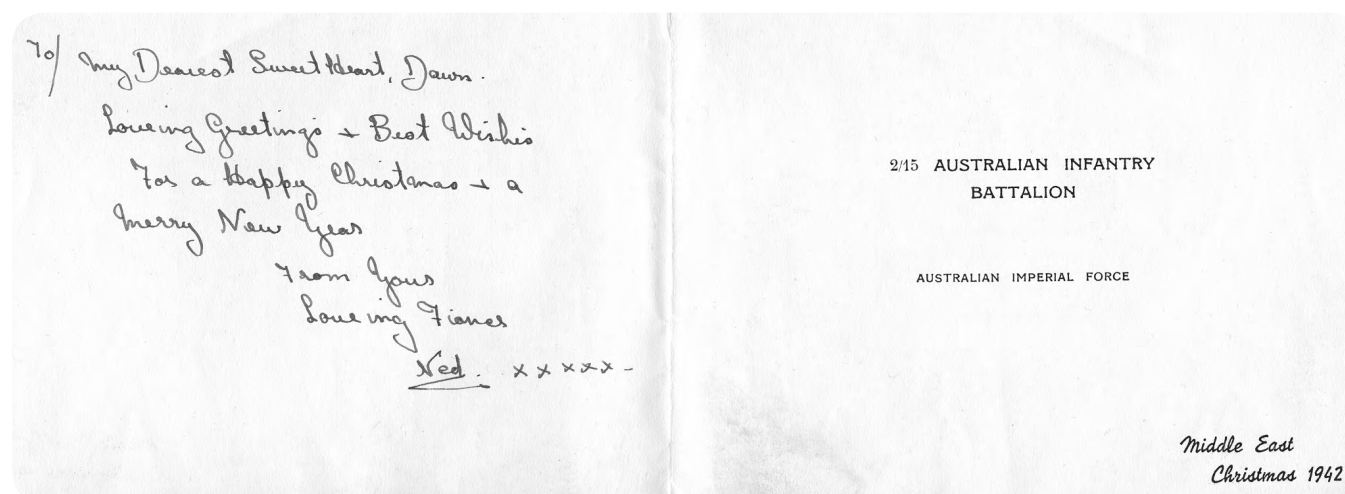 To/ My Dearest SweetHeart, Dawn.
Loveing Greetings + Best Wishes
For a Happy Christmas + a
Merry New Year
From Your
Loveing Fiance
Ned. x x x x x -
2/15 AUSTRALIAN INFANTRY
BATTALION
AUSTRALIAN IMPERIAL FORCE
Middle East
Christmas 1942